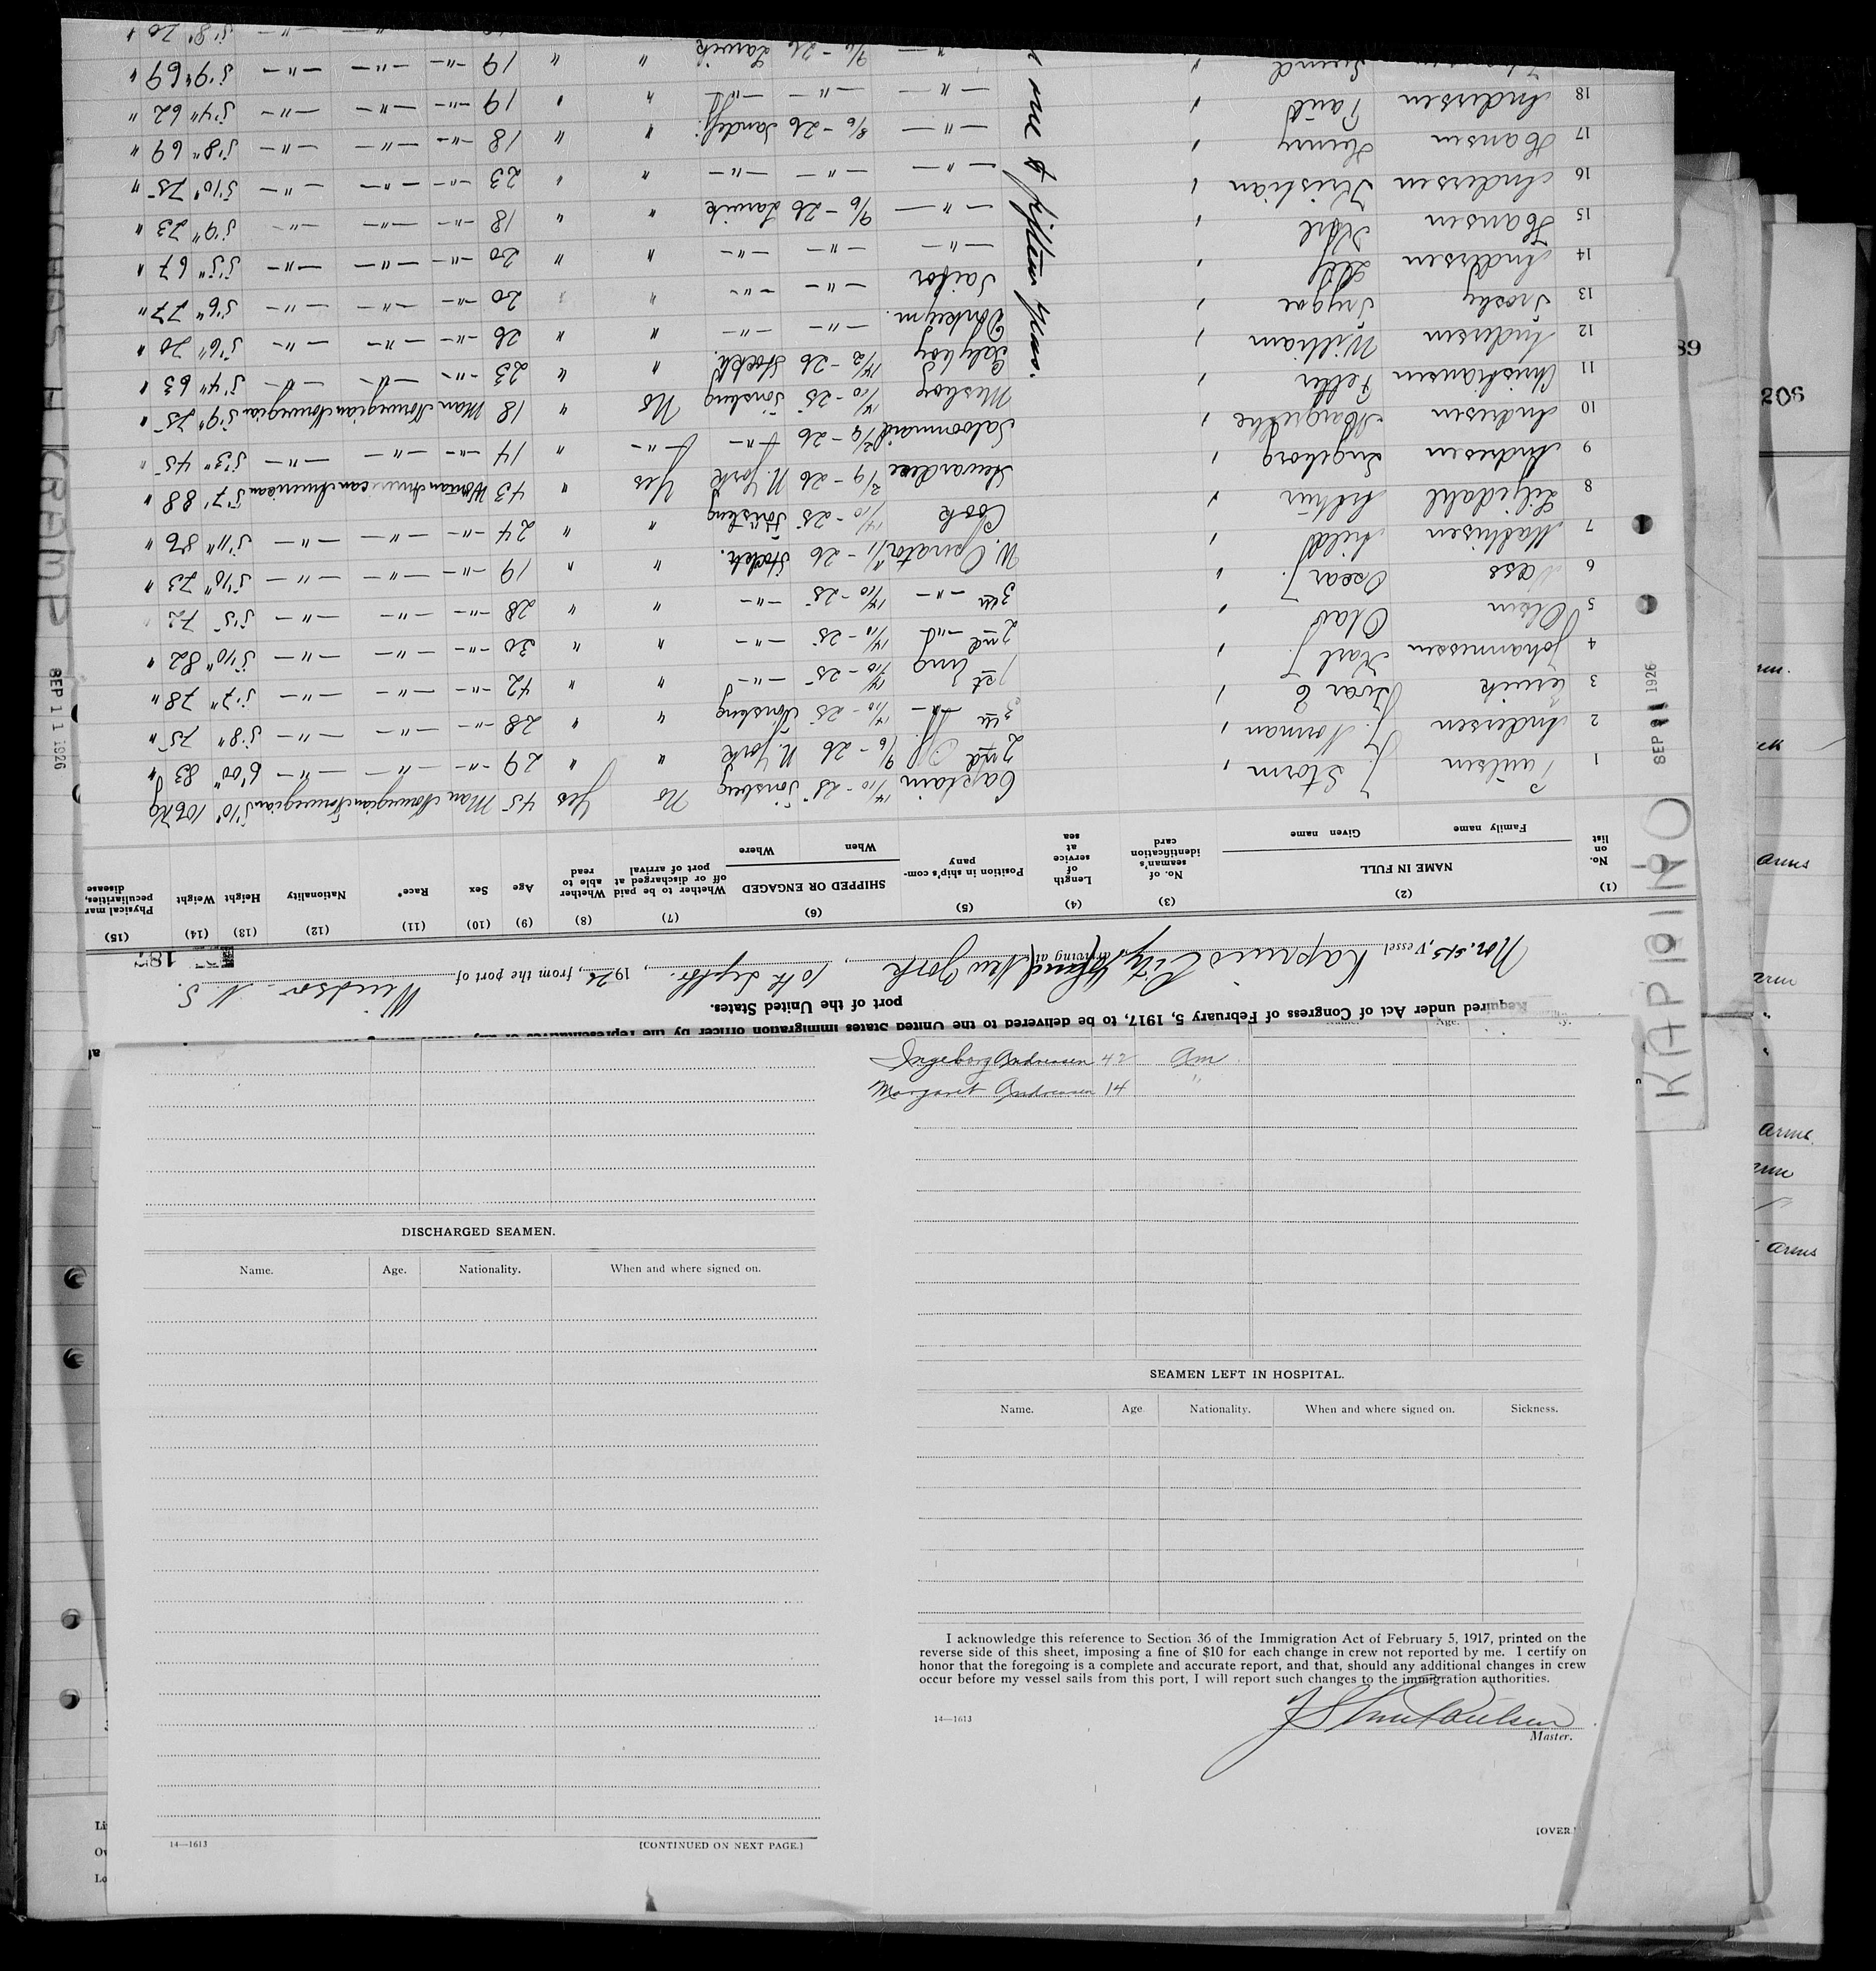 Required under Act of Congress of February 5, 1917, to be delivered to the United States immigration officer by the representatives of
port of the United States.
Nor. S/S. Vessel arriving at New York, 10th Septbr., 1926, from the port of Windsor N. S.
187
(1) (2) (3) (4) (5) (6) (7) (8) (9) (10) (11) (12) (13) (14) (15)
No. on list
NAME IN FULL
Family name Given name
No. of seaman's identification card
Length of service at sea
Position in ship's company
SHIPPED OR ENGAGED
When Where
Whether to be paid off or discharged at port of arrival
Whether able to read
Age Sex Race* Nationality Height Weight
Physical mar peculiarities, disease
Paulsen J. Storm " Captain 14/10 - 25 Tönsberg No Yes 45 Man Norwegian Norwegian 5'10" 106 Kg
1 Andersen J. Norman " 2nd Off. 9/6 - 26 N. York " " 29 -"- -"- -"- 6'00" 83 "
2 Ervik Ivar E " 3th -"- 14/10 - 25 Tönsberg " " 28 -"- -"- -"- 5'8" 75 "
3 Johannessen Karl J. " 1st Eng 14/10 - 25 -"- " " 42 -"- -"- -"- 5'7" 78 "
4 Olsen Olav " 2nd -"- 14/10 - 25 -"- " " 30 -"- -"- -"- 5'10" 82 "
5 Næss Oscar J. " 3th -"- 14/10 - 25 -"- " " 28 -"- -"- -"- 5'5" 72
6 Mathisen " W. Operator 11/1 - 26 Stockh. " " 19 -"- -"- -"- 5'10" 73 "
7 Liljedahl Arthur " Cook 14/10 - 25 Tönsberg " " 24 -"- -"- -"- 5'11" 86 "
8 Andresen Ingeborg " Stewardess 2/9 - 26 N. York Yes " 43 Woman American American 5'7" 88 "
9 Andresen Margrethe " Saloonmaid 2/9 - 26 -"- -"- " 14 -"- -"- -"- 5'3" 45 "
10 Christiansen Petter " Messboy 14/10 - 25 Tönsberg No " 18 Man Norwegian Norwegian 5'9" 75 "
11 Andersen William " Galyboy 14/2 - 26 Stockh. " " 23 -"- -"- -"- 5'4" 63 "
12 Trosby Trygve " Donkeym. -"- -"- " " 26 -"- -"- -"- 5'6" 70 "
13 Andersen Leif " Sailor -"- -"- " " 20 -"- -"- -"- 5'6" 77 "
14 Hansen " -"- -"- -"- " " 20 -"- -"- -"- 5'5" 67 "
15 Andersen Kristian " -"- 9/6 - 26 Larvik " " 18 -"- -"- -"- 5'9" 73 "
16 Hansen Henry " -"- -"- -"- " " 23 -"- -"- -"- 5'10" 75 "
17 Andersen Paul " -"- 8/6 - 26 Sandefj. " " 18 -"- -"- -"- 5'8" 69 "
18 Svend " -"- -"- -"- " " 19 -"- -"- -"- 5'4" 62 "
-"- 9/6 - 26 Larvik " " 19 -"- -"- -"- 5'9" 69 "
5'8" 70 "
one to fifteen years.
SEP 11 1926
SEP 11 1926
89
206
arms
arms
arms
Ingeborg Andresen 42 Am
Margaret Andresen 14 "
DISCHARGED SEAMEN.
Name. Age. Nationality. When and where signed on.
14—1613 [CONTINUED ON NEXT PAGE.]
SEAMEN LEFT IN HOSPITAL.
Name. Age Nationality. When and where signed on. Sickness.
I acknowledge this reference to Section 36 of the Immigration Act of February 5, 1917, printed on the
reverse side of this sheet, imposing a fine of $10 for each change in crew not reported by me. I certify on
honor that the foregoing is a complete and accurate report, and that, should any additional changes in crew
occur before my vessel sails from this port, I will report such changes to the immigration authorities.
J Storm Paulsen
Master.
14—1613
[OVER.]